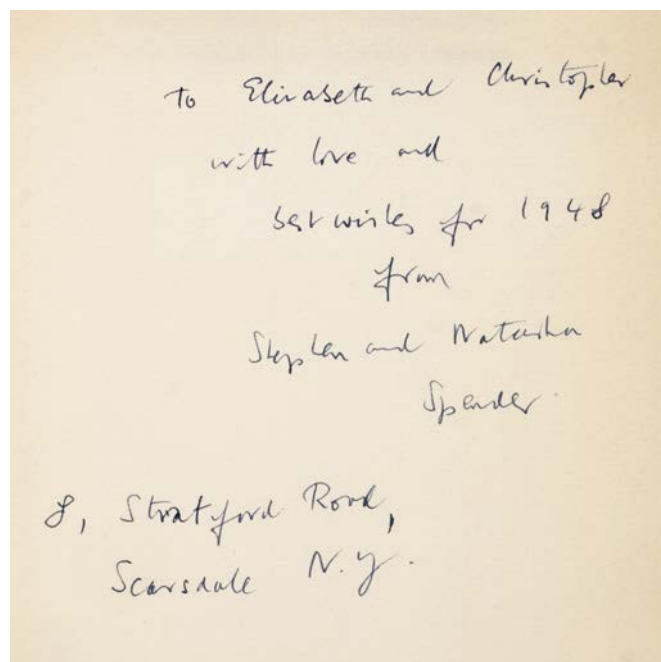 To Elizabeth and Christopher
with love and
best wishes for 1948
from
Stephen and Natasha
Spender.
8, Stratford Road,
Scarsdale N.Y.